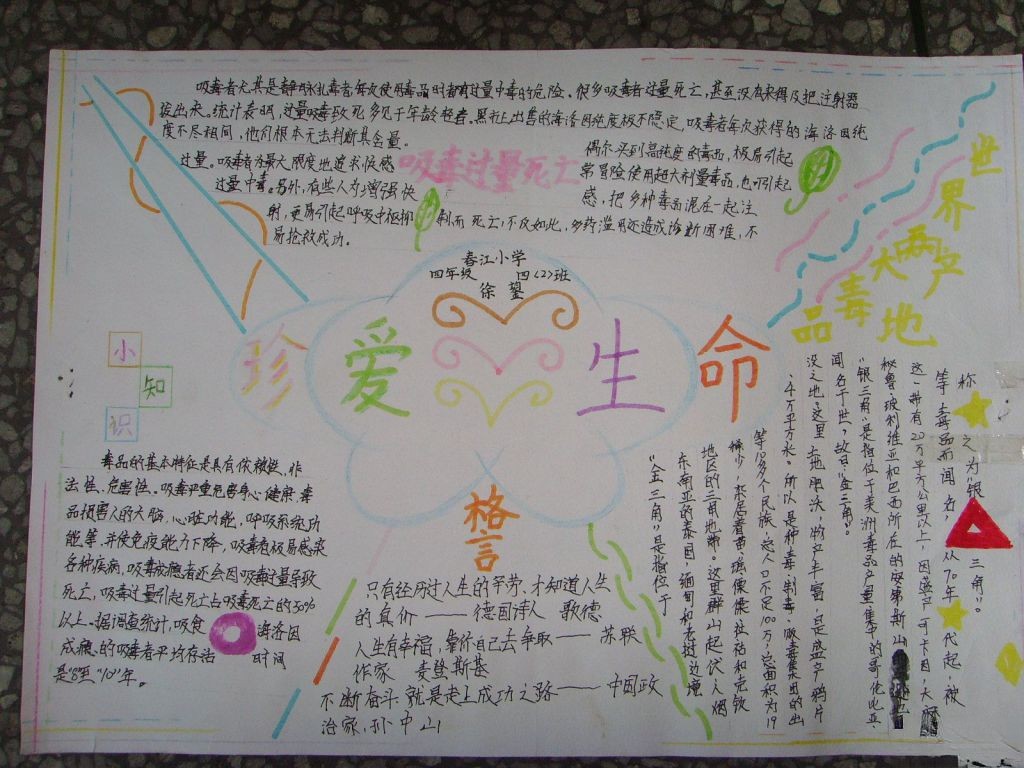 吸毒者尤其是静脉扎毒者每次使用毒品时都有过量中毒的危险、很多吸毒者过量死亡,甚至没有来得及把注射器
拔出来。统计表明,过量吸毒致死多见于年龄轻者。黑市上出售的海洛因纯度极不隐定,吸毒者每次获得的海洛因纯
度不尽相同,他们根本无法判断其含量。
偶尔买到高纯度的毒品,极易引起
过量。吸毒者为最大限度地追求快感
常冒险使用超大剂量毒品,也可引起
过量中毒。另外,有些人为增强快
感,把多种毒品混在一起注
射,更易引起呼吸中枢抑
制而死亡;不仅如此,多药滥用还造成诊断困难,不
易抢救成功。
吸毒过量死亡
世界两大毒品产地
春江小学
四年级 四〈2〉班
徐
珍爱生命
小
知
识
毒品的基本特征是具有依赖性、非
法性、危害性。吸毒严重危害身心健康,毒
品损害人的大脑,心脏功能,呼吸系统功
能等,并使免疫能力下降,吸毒者极易感染
各种疾病,吸毒成瘾者还会因吸毒过量导致
死亡,吸毒过量引起死亡占吸毒死亡的30%
以上。据调查统计,吸食海洛因
成瘾的吸毒者平均存活时间
是"8至"10"年。
格言
只有经历过人生的平劳、才知道人生
的真价——德国诗人 歌德
人生有幸福,靠你自己去争取——苏联
作家 麦登斯基
不断奋斗就是走上成功之路——中国政
治家,孙中山
"金三角"是指位于
东南亚的泰国、缅甸和老挝边境
地区的三角地带。这里群山起伏人烟
稀少,来居着苗、瑶、傈僳、拉祜和克钦
等10多个人民族,总人口不足100万,总面积为19
.4万平方米。所以是种毒、制毒、吸毒集团的出
没之地,这里土地肥沃,物产丰富,且是盛产鸦片
闻名于世,故曰"金三角"。
"银三角"是指位于美洲毒品产量集中的哥伦比亚、
秘鲁、玻利维亚和巴西所在的安第斯山
这一带有20万平方公里以上,因盛产可卡因,大麻
等毒品而闻名,从70年代起,被
称之为"银三角"。